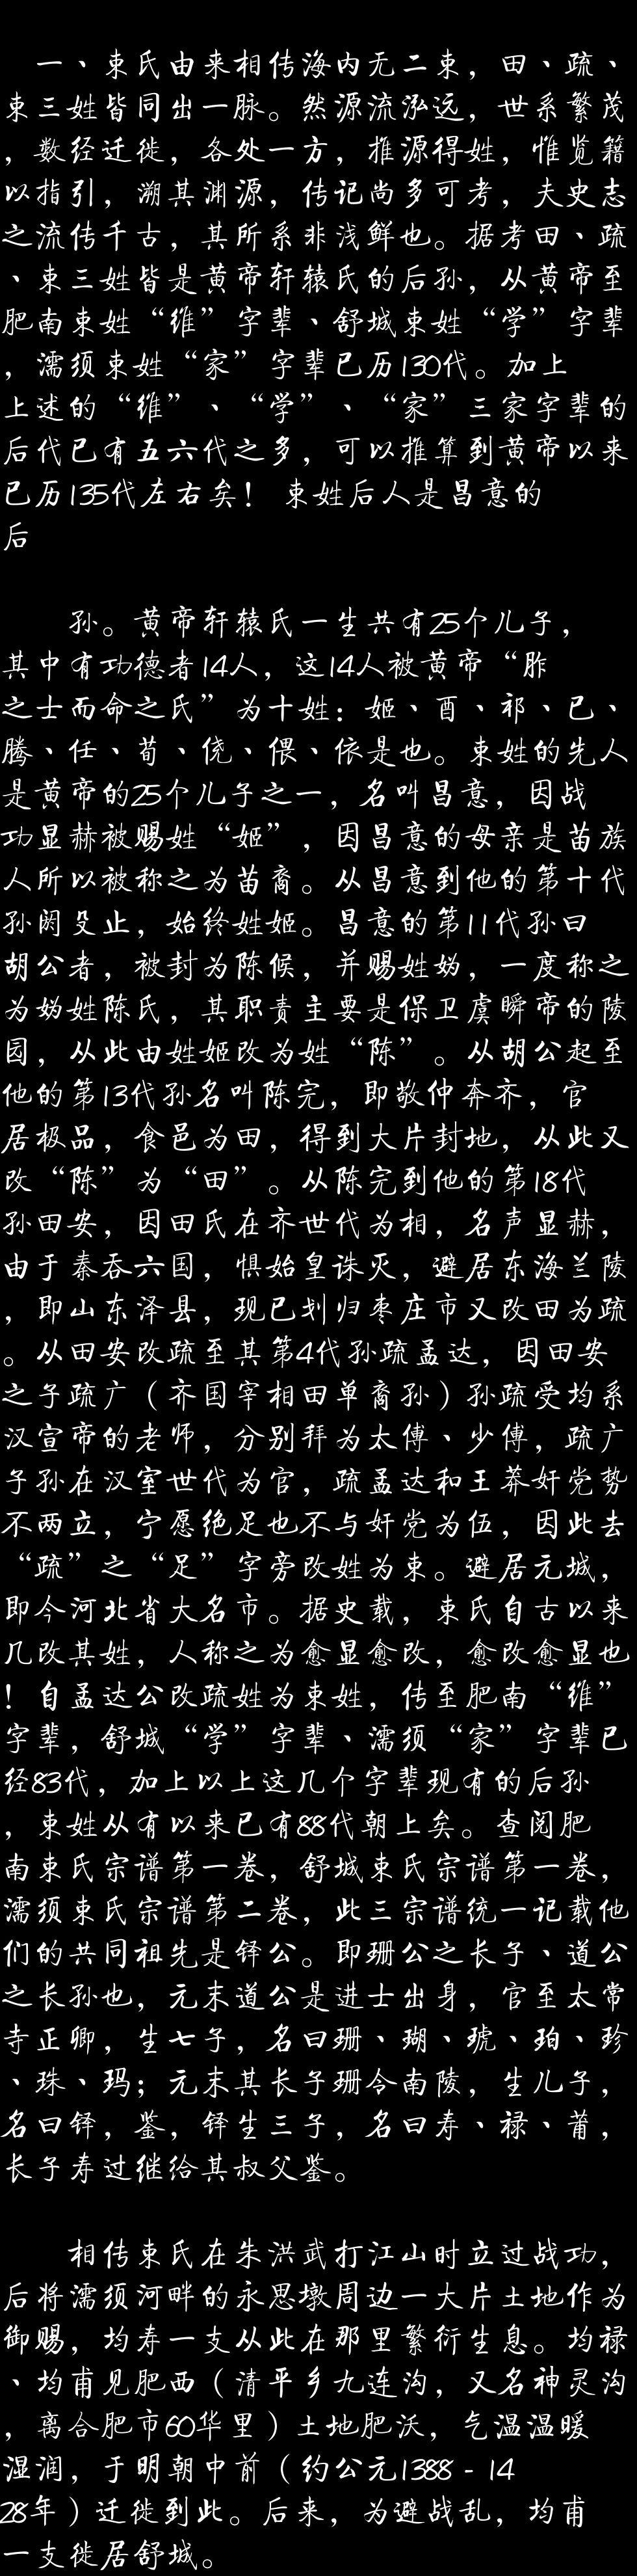 一、束氏由来相传海内无二束，田、疏、
束三姓皆同出一脉。然源流泓远，世系繁茂
，数经迁徙，各处一方，推源得姓，惟览籍
以指引，溯其渊源，传记尚多可考，夫史志
之流传千古，其所系非浅鲜也。据考田、疏
、束三姓皆是黄帝轩辕氏的后孙，从黄帝至
肥南束姓“维”字辈、舒城束姓“学”字辈
，濡须束姓“家”字辈已历130代。加上
上述的“维”、“学”、“家”三家字辈的
后代已有五六代之多，可以推算到黄帝以来
已历135代左右矣！束姓后人是昌意的
后
孙。黄帝轩辕氏一生共有25个儿子，
其中有功德者14人，这14人被黄帝“胙
之士而命之氏”为十姓：姬、酉、祁、已、
腾、任、荀、侥、偎、依是也。束姓的先人
是黄帝的25个儿子之一，名叫昌意，因战
功显赫被赐姓“姬”，因昌意的母亲是苗族
人所以被称之为苗裔。从昌意到他的第十代
孙阏殳止，始终姓姬。昌意的第11代孙曰
胡公者，被封为陈候，并赐姓妫，一度称之
为妫姓陈氏，其职责主要是保卫虞瞬帝的陵
园，从此由姓姬改为姓“陈”。从胡公起至
他的第13代孙名叫陈完，即敬仲奔齐，官
居极品，食邑为田，得到大片封地，从此又
改“陈”为“田”。从陈完到他的第18代
孙田安，因田氏在齐世代为相，名声显赫，
由于秦吞六国，惧始皇诛灭，避居东海兰陵
，即山东泽县，现已划归枣庄市又改田为疏
。从田安改疏至其第4代孙疏孟达，因田安
之子疏广（齐国宰相田单裔孙）孙疏受均系
汉宣帝的老师，分别拜为太傅、少傅，疏广
子孙在汉室世代为官，疏孟达和王莽奸党势
不两立，宁愿绝足也不与奸党为伍，因此去
“疏”之“足”字旁改姓为束。避居元城，
即今河北省大名市。据史载，束氏自古以来
几改其姓，人称之为愈显愈改，愈改愈显也
！自孟达公改疏姓为束姓，传至肥南“维”
字辈，舒城“学”字辈、濡须“家”字辈已
经83代，加上以上这几个字辈现有的后孙
，束姓从有以来已有88代朝上矣。查阅肥
南束氏宗谱第一卷，舒城束氏宗谱第一卷，
濡须束氏宗谱第二卷，此三宗谱统一记载他
们的共同祖先是铎公。即珊公之长子、道公
之长孙也，元末道公是进士出身，官至太常
寺正卿，生七子，名曰珊、瑚、琥、珀、珍
、珠、玛；元末其长子珊令南陵，生儿子，
名曰铎，鉴，铎生三子，名曰寿、禄、莆，
长子寿过继给其叔父鉴。
相传束氏在朱洪武打江山时立过战功，
后将濡须河畔的永思墩周边一大片土地作为
御赐，均寿一支从此在那里繁衍生息。均禄
、均甫见肥西（清平乡九连沟，又名神灵沟
，离合肥市60华里）土地肥沃，气温温暖
湿润，于明朝中前（约公元1388－14
28年）迁徙到此。后来，为避战乱，均甫
一支徙居舒城。